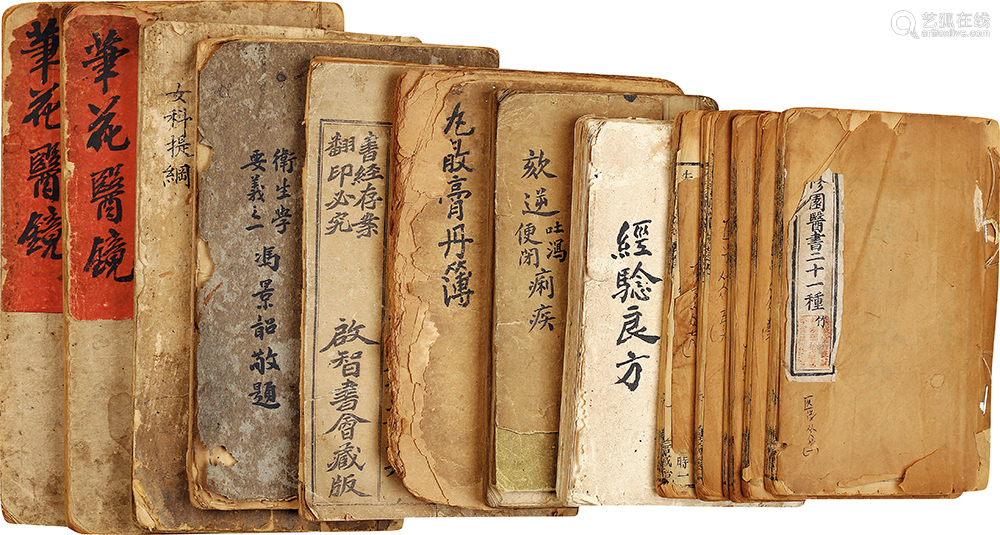 筆花醫鏡
華花醫鏡
女科提綱
衛生学
要義之一
馮景韶敬題
書經存案
翻印必究
啟智書會藏版
丸散膏丹簿
欬逆
吐瀉
便閉
痢疾
經驗良方
時一
修園醫書二十一種
竹
艺狐在线
artfoxlive.com